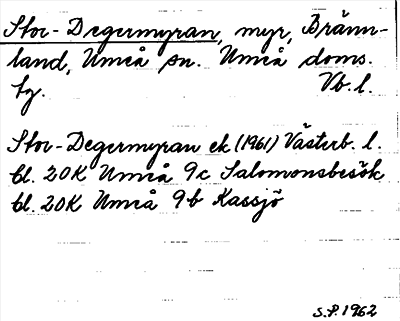 Stor-Degermyran, myr, Bränn-
land, Umeå sn. Umeå doms.
tg. Vb. l.
Stor-Degermyran ek (1961) Västerb. l.
bl. 20K Umeå 9c Salomonsbesök
bl. 20K Umeå 9b Kassjö
S.P. 1962